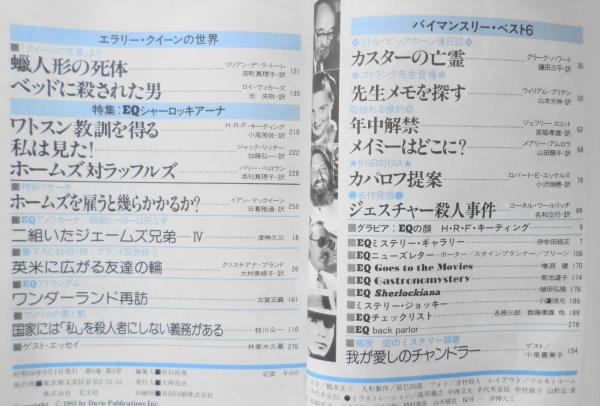 エラリー・クイーンの世界
■「クイーンの定員」より
蠟人形の死体
リリアン・デ・ラ・トーレ
深町眞理子・訳 121
ベッドに殺された男
ロイ・ヴィカーズ
池 央耿・訳 135
特集：EQシャーロッキアーナ
ワトスン教訓を得る
H・R・F・キーティング
小尾芙佐・訳 210
私は見た！
ジャック・リッチー
加藤弘一・訳 222
ホームズ対ラッフルズ
バリー・ペロウン
酒匂真理子・訳 228
■特別リサーチ
ホームズを雇うと幾らかかるか？
イアン・マックイーン
日暮雅通・訳 250
■EQアメリカーナ：西部ヒーローは死なず
二組いたジェームズ兄弟―Ⅳ
津神久三 18
■書下ろし封切り版：ブランド回想録
英米に広がる友達の輪
クリスチアナ・ブランド
大村美根子・訳 26
■EQアトランダム
ワンダーランド再訪
古賀正義 161
■アメリカの罪と罰
国家には「私」を殺人者にしない義務がある
枝川公一 110
■ゲスト・エッセイ
林家木久蔵 276
定価
バイマンスリー・ベスト6
❖リトル・ビッグホーン後日談❖
カスターの亡霊
クラーク・ハワード
鎌田三平・訳 36
★ストラング先生登場★
先生メモを探す
ウィリアム・ブリテン
山本光伸・訳 50
◎揺れる標的◎
年中解禁
ジェフリー・スコット
宮脇孝雄・訳 62
メイミーはどこに？
メアリー・アムロウ
山田順子・訳 68
★KGB対CIA★
カパロフ提案
ロバート・E・エッケルズ
小沢瑞穂・訳 78
●名作発掘●
ジェスチャー殺人事件
コーネル・ウールリッチ
名和立行・訳 88
■グラビア：EQの顔 H・R・F・キーティング 9
■EQミステリー・ギャラリー 伊奈田経正 7
■EQニューズレター・ポーター/スタインブランナー/ブリーン 106
■EQ Goes to the Movies 増淵 健 170
■EQ Gastronomystery 菊池道子 174
■EQ Sherlockiana 植田弘隆 176
■ミステリー・ジョッキー 小鷹信光 186
■EQチェックリスト 各務三郎/数藤康雄 他 188
■EQ back parlor 278
■郷原 宏のミステリー調書
我が愛しのチャンドラー
ゲスト/
小泉喜美子 154